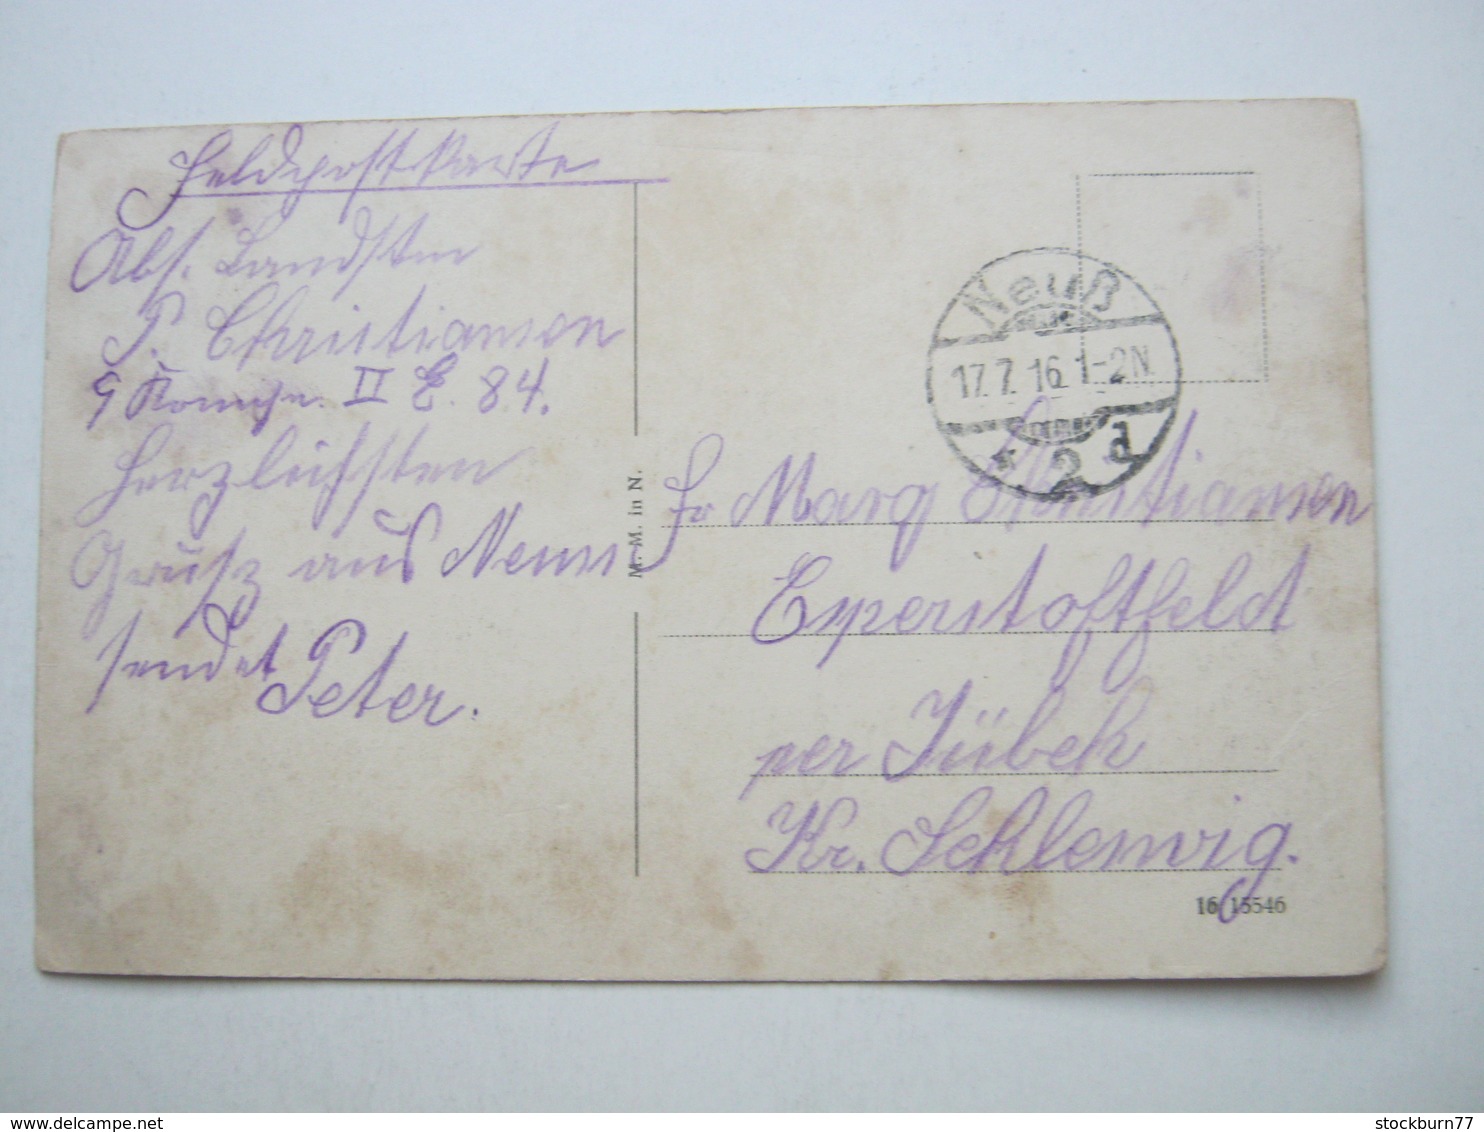 Feldpostkarte
Abs. Landstm
P. Christiansen
9 Komp. II E. 84.
Herzlichsten
Gruß aus Neuss
sendet Peter.
M. M. in N.
Neuß
17.7.16.1-2N
* 2 d
Fr Marg Christiansen
Esperstoftfeld
per Jübek
Kr. Schleswig.
16 15546
stockburn77